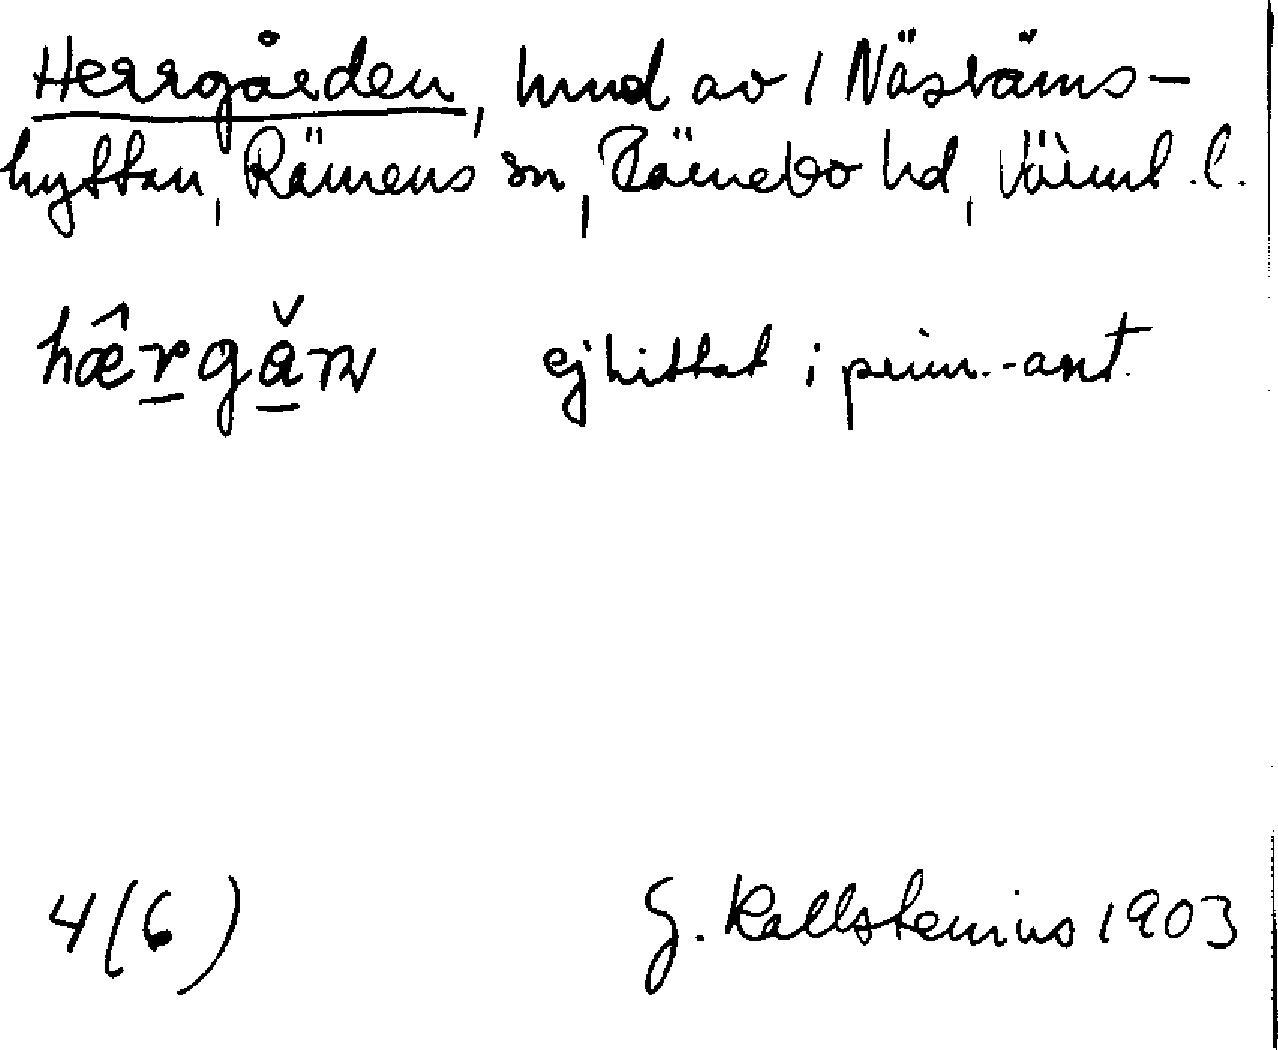 Herrgården, hmd av 1 Näsräms-
hyttan, Rämens sn, Färnebo hd, Värml. l.
hæ̂rgǎn ej hittat i prim.-ant.
4(6) G. Kallstenius 1903